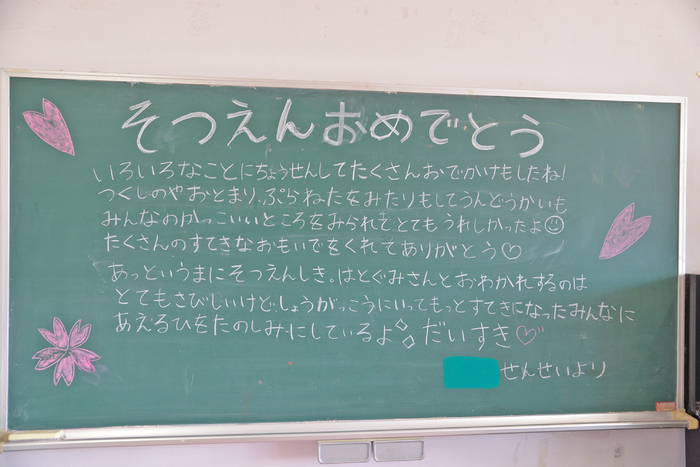 そつえんおめでとう
いろいろなことにちょうせんしてたくさんおでかけもしたね!
つくしのやおとまり、ぷらねたをみたりもしてうんどうかいも
みんなのかっこいいところをみられてとてもうれしかったよ☺
たくさんのすてきなおもいでをくれてありがとう♡
あっというまにそつえんしき。はとぐみさんとおわかれするのは
とてもさびしいけど、しょうがっこうにいってもっとすてきになったみんなに
あえるひをたのしみにしているよ。だいすき♡
せんせいより